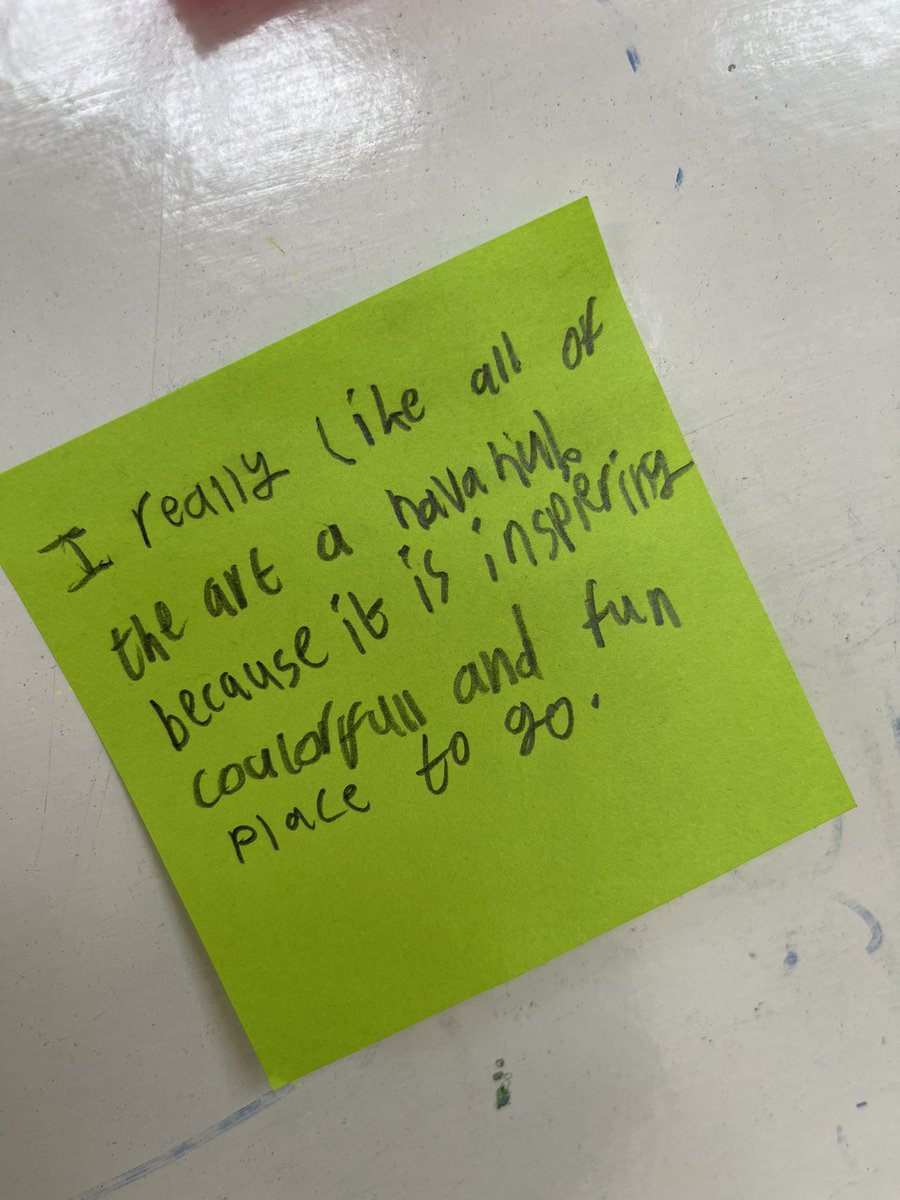 I really like all of
the art a havahill
because it is inspiering
coulorfull and fun
place to go.